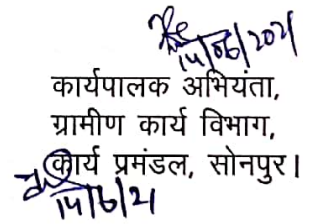 14/06/2021
कार्यपालक अभियंता,
ग्रामीण कार्य विभाग,
कार्य प्रमंडल, सोनपुर।
14/6/21